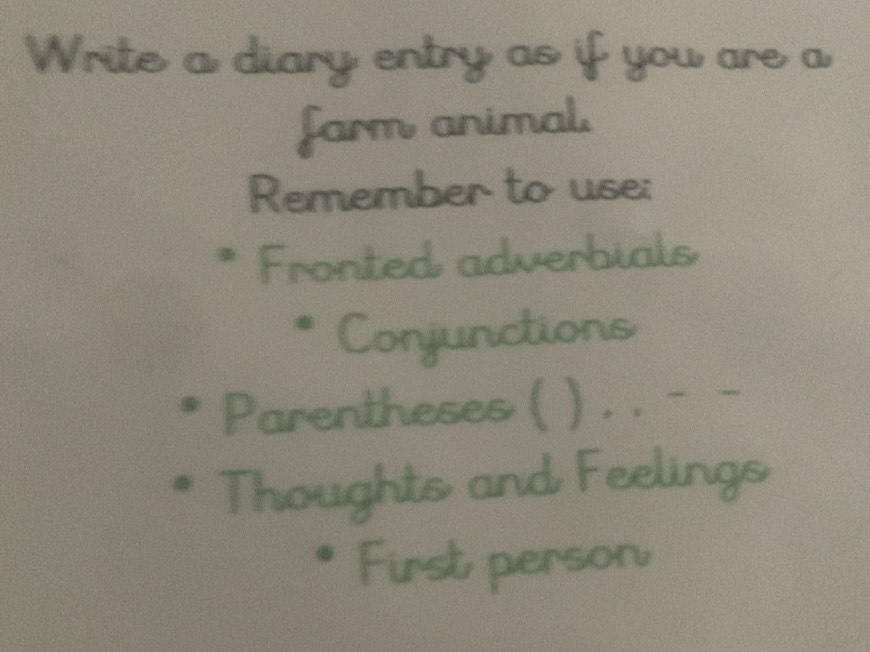 Write a diary entry as if you are a
farm animal.
Remember to use:
• Fronted adverbials
• Conjunctions
• Parentheses ( ) . . - -
• Thoughts and Feelings
• First person